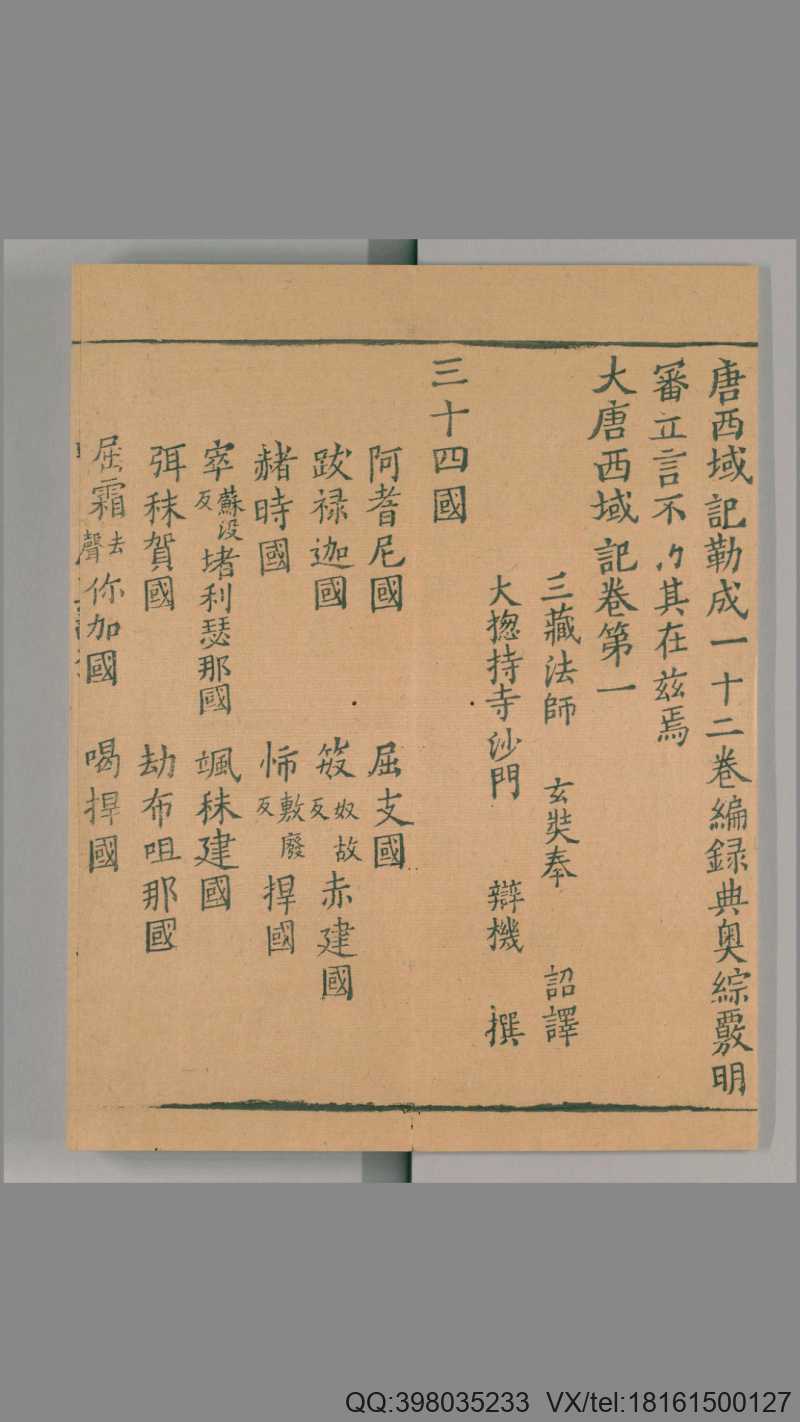 唐西域記勒成一十二卷編録典奥綜覈明
審立言不其在兹焉
大唐西域記卷第一
三藏法師 玄奘奉 詔譯
大揔持寺沙門 辯機 撰
三十四國
阿耆尼國 屈支國
跋禄迦國 笯奴故反赤建國
赭時國 㤄敷廢反捍國
窣蘇没反堵利瑟那國 颯秣建國
弭秣賀國 劫布咀那國
屈霜去聲你加國 喝捍國
QQ:398035233 VX/tel:18161500127